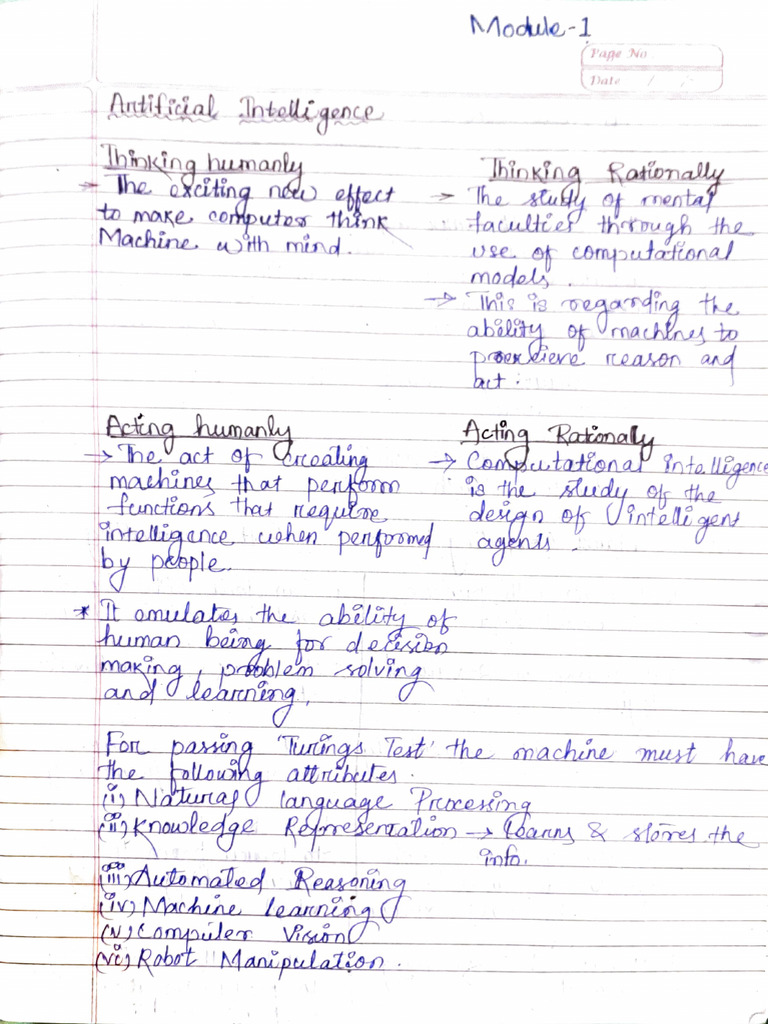 Module-1
Page No
Date / /
Artificial Intelligence
Thinking humanly
→ The exciting new effect
to make computer think
Machine with mind.
Thinking Rationally
→ The study of mental
faculties through the
use of computational
models.
→ This is regarding the
ability of machines to
reason and
act.
Acting humanly
→ The act of creating
machines that perform
functions that require
intelligence when performed
by people.
Acting Rationally
→ Computational intelligence
is the study of the
design of intelligent
agents.
* It omulates the ability of
human being for decision
making, problem solving
and learning.
For passing 'Turings Test' the machine must have
the following attributes.
(i) Natural language Processing
(ii) Knowledge Representation → Learns & stores the
info.
(iii) Automated Reasoning
(iv) Machine learning
(v) Computer Vision
(vi) Robot Manipulation.